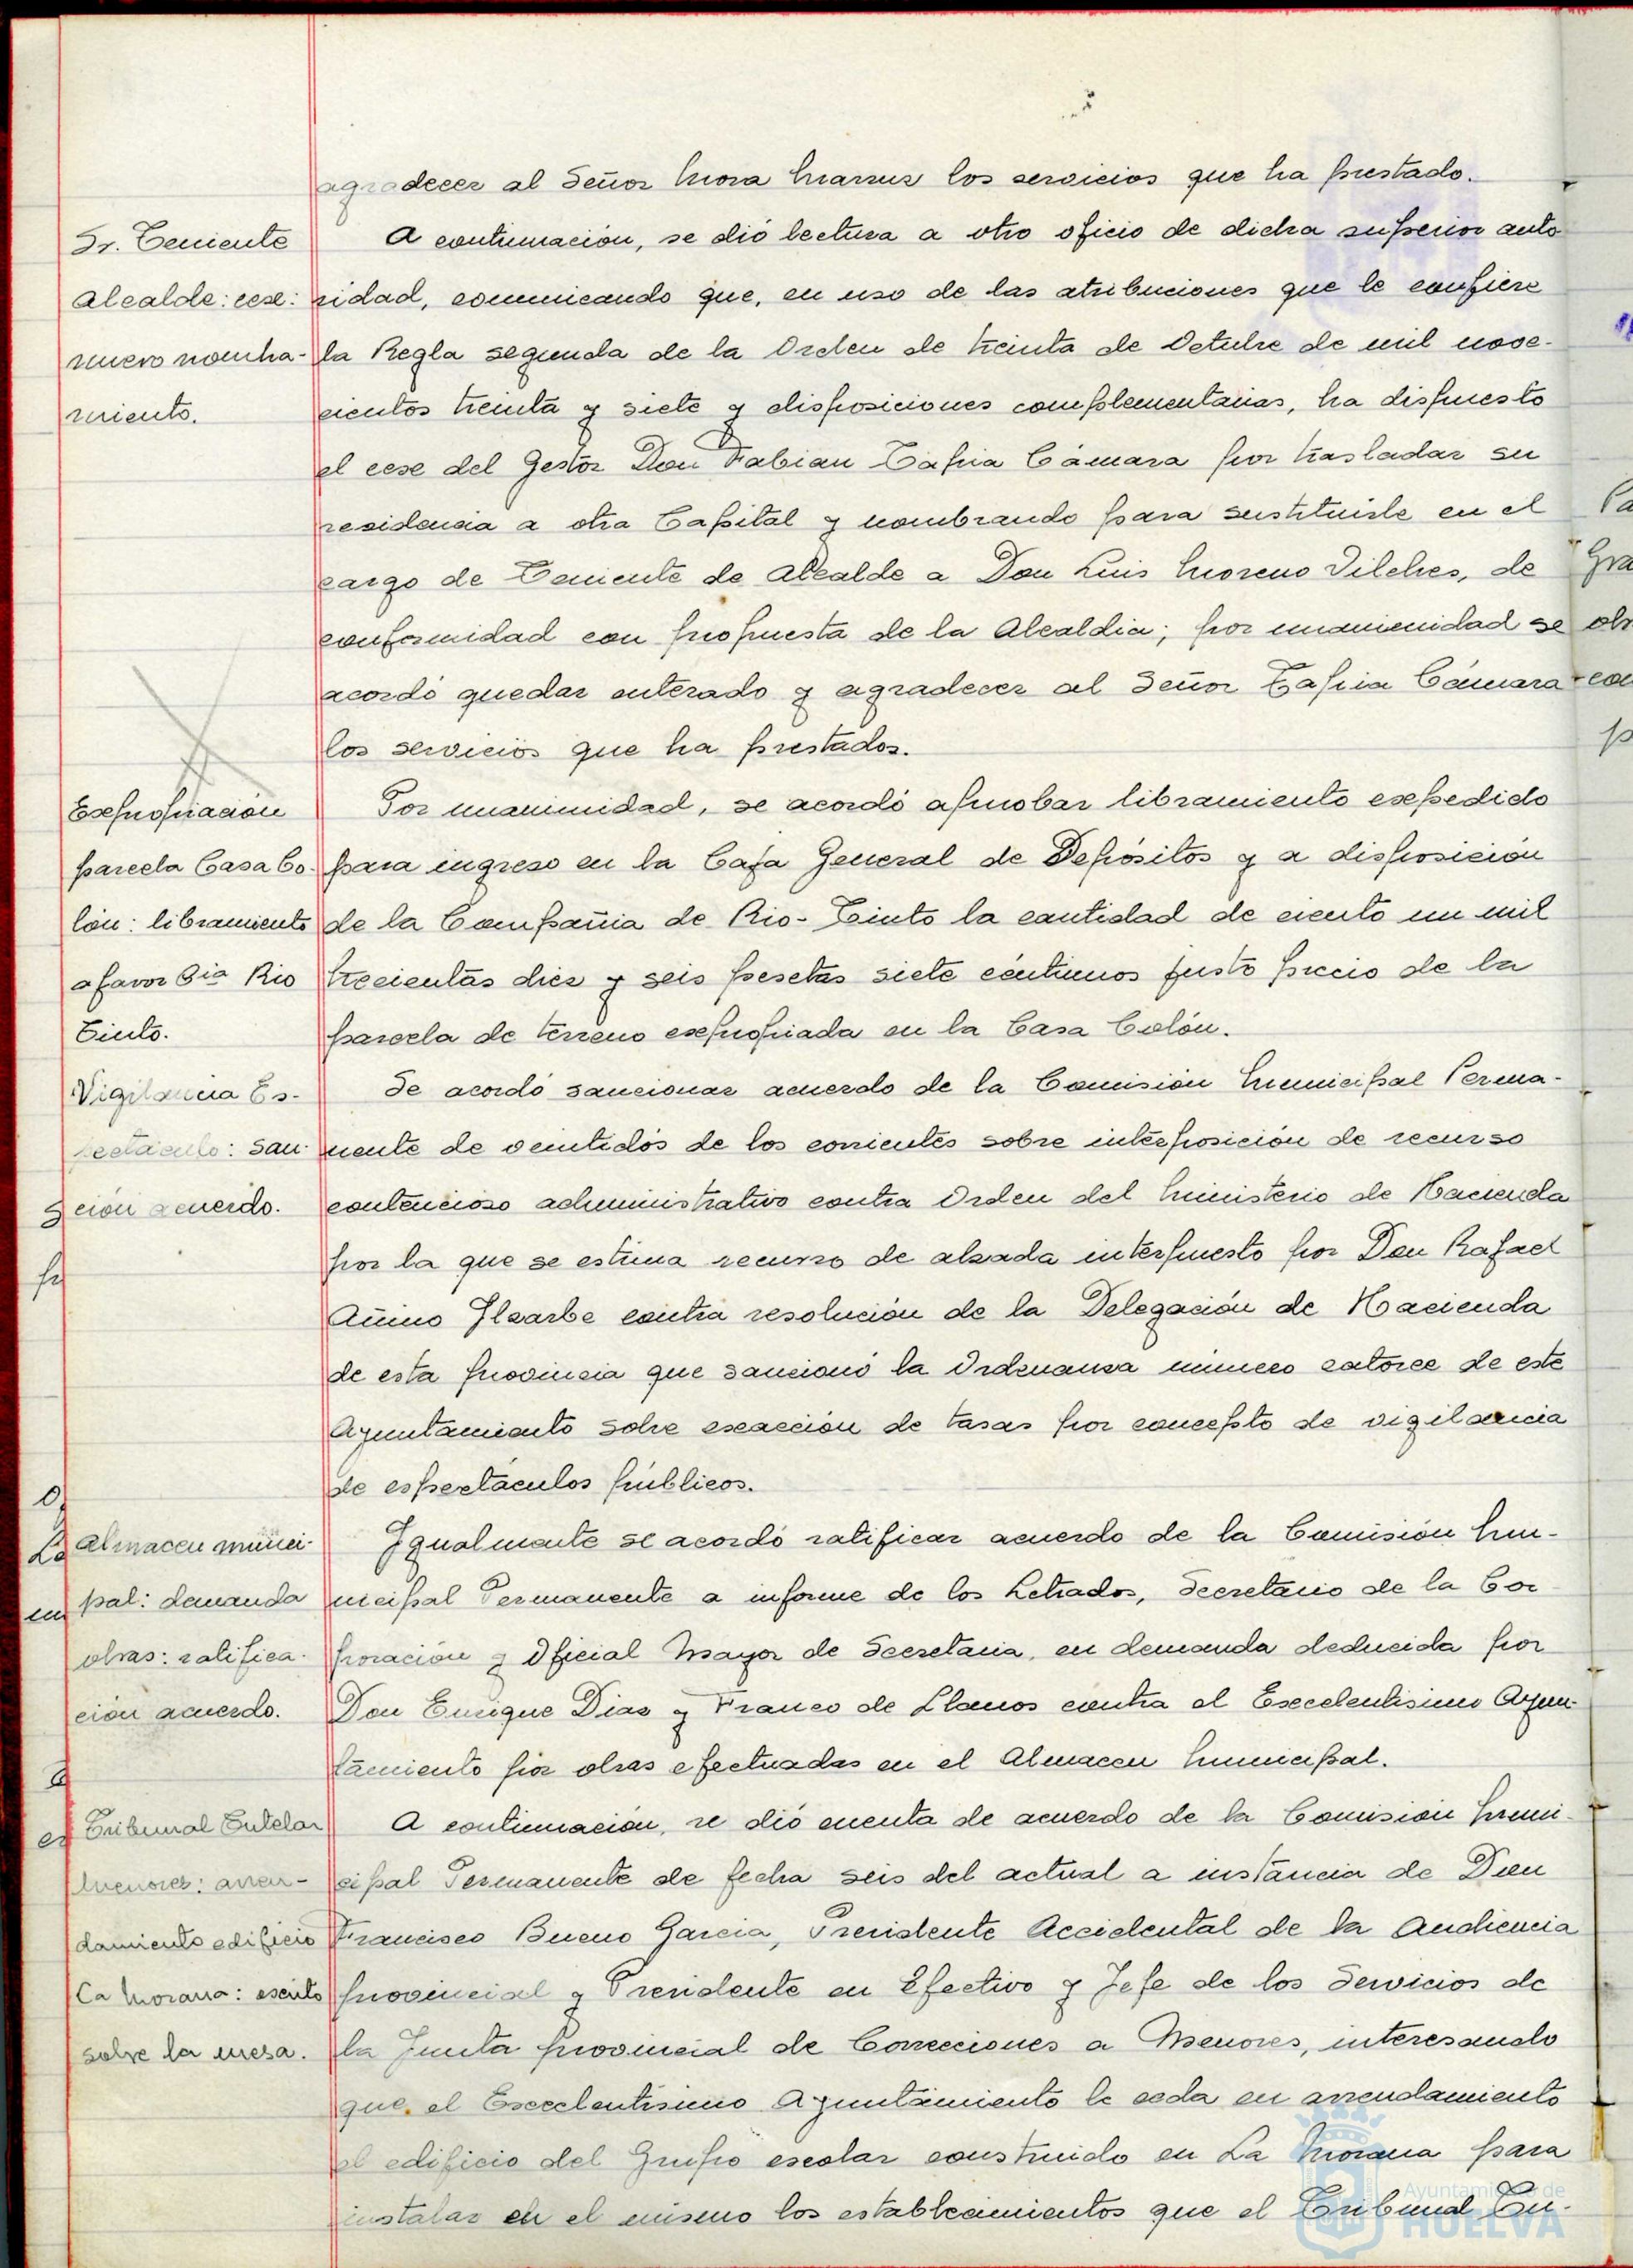 agradecer al Señor Mora Marrus los servicios que ha prestado.
Sr. Teniente
Alcalde: cese:
nuevo nombra-
miento.
A continuación, se dió lectura a otro oficio de dicha superior auto
ridad, comunicando que, en uso de las atribuciones que le confiere
la Regla segunda de la Orden de treinta de Octubre de mil nove-
cientos treinta y siete y disposiciones complementarias, ha dispuesto
el cese del Gestor Don Fabian Tapia Cámara por trasladar su
residencia a otra Capital y nombrando para sustituirle en el
cargo de Teniente de Alcalde a Don Luis Moreno Vilches, de
conformidad con propuesta de la Alcaldia; por unanimidad se
acordó quedar enterado y agradecer al Señor Tapia Cámara
los servicios que ha prestados.
Expropiación
parcela Casa Co-
lón: libramiento
a favor Cia Rio
Tinto.
Por unanimidad, se acordó aprobar libramiento expedido
para ingreso en la Caja General de Depósitos y a disposición
de la Compañia de Rio-Tinto la cantidad de ciento un mil
trecientas diez y seis pesetas siete céntimos justo precio de la
parcela de terreno expropiada en la Casa Colón.
Vigilancia Es-
pectáculo: san-
ción acuerdo.
Se acordó sancionar acuerdo de la Comisión Municipal Perma-
nente de veintidós de los corrientes sobre interposición de recurso
contencioso administrativo contra Orden del Ministerio de Hacienda
por la que se estima recurso de alzada interpuesto por Don Rafael
Añino Ilzarbe contra resolución de la Delegación de Hacienda
de esta provincia que sancionó la Ordenanza número catorce de este
Ayuntamiento sobre exacción de tasas por concepto de vigilancia
de espectáculos públicos.
Almacen munici-
pal: demanda
obras: ratifica-
ción acuerdo.
Igualmente se acordó ratificar acuerdo de la Comisión Mu-
nicipal Permanente a informe de los Letrados, Secretario de la Cor
poración y Oficial Mayor de Secretaria, en demanda deducida por
Don Enrique Diaz y Franco de Llanos contra el Excelentisimo Ayun-
tamiento por obras efectuadas en el Almacen Municipal.
Tribunal Tutelar
Menores: arren-
damiento edificio
La Morana: escrito
sobre la mesa.
A continuación, se dió cuenta de acuerdo de la Comisión Muni-
cipal Permanente de fecha seis del actual a instancia de Don
Francisco Bueno Garcia, Presidente Accidental de la Audiencia
provincial y Presidente en Efectivo y Jefe de los Servicios de
la Junta provincial de Correcciones a Menores, interesando
que el Excelentisimo Ayuntamiento le ceda en arrendamiento
el edificio del Grupo escolar construido en La Morana para
instalar en el mismo los establecimientos que el Tribunal Tu-
Ayuntamiento de
HUELVA